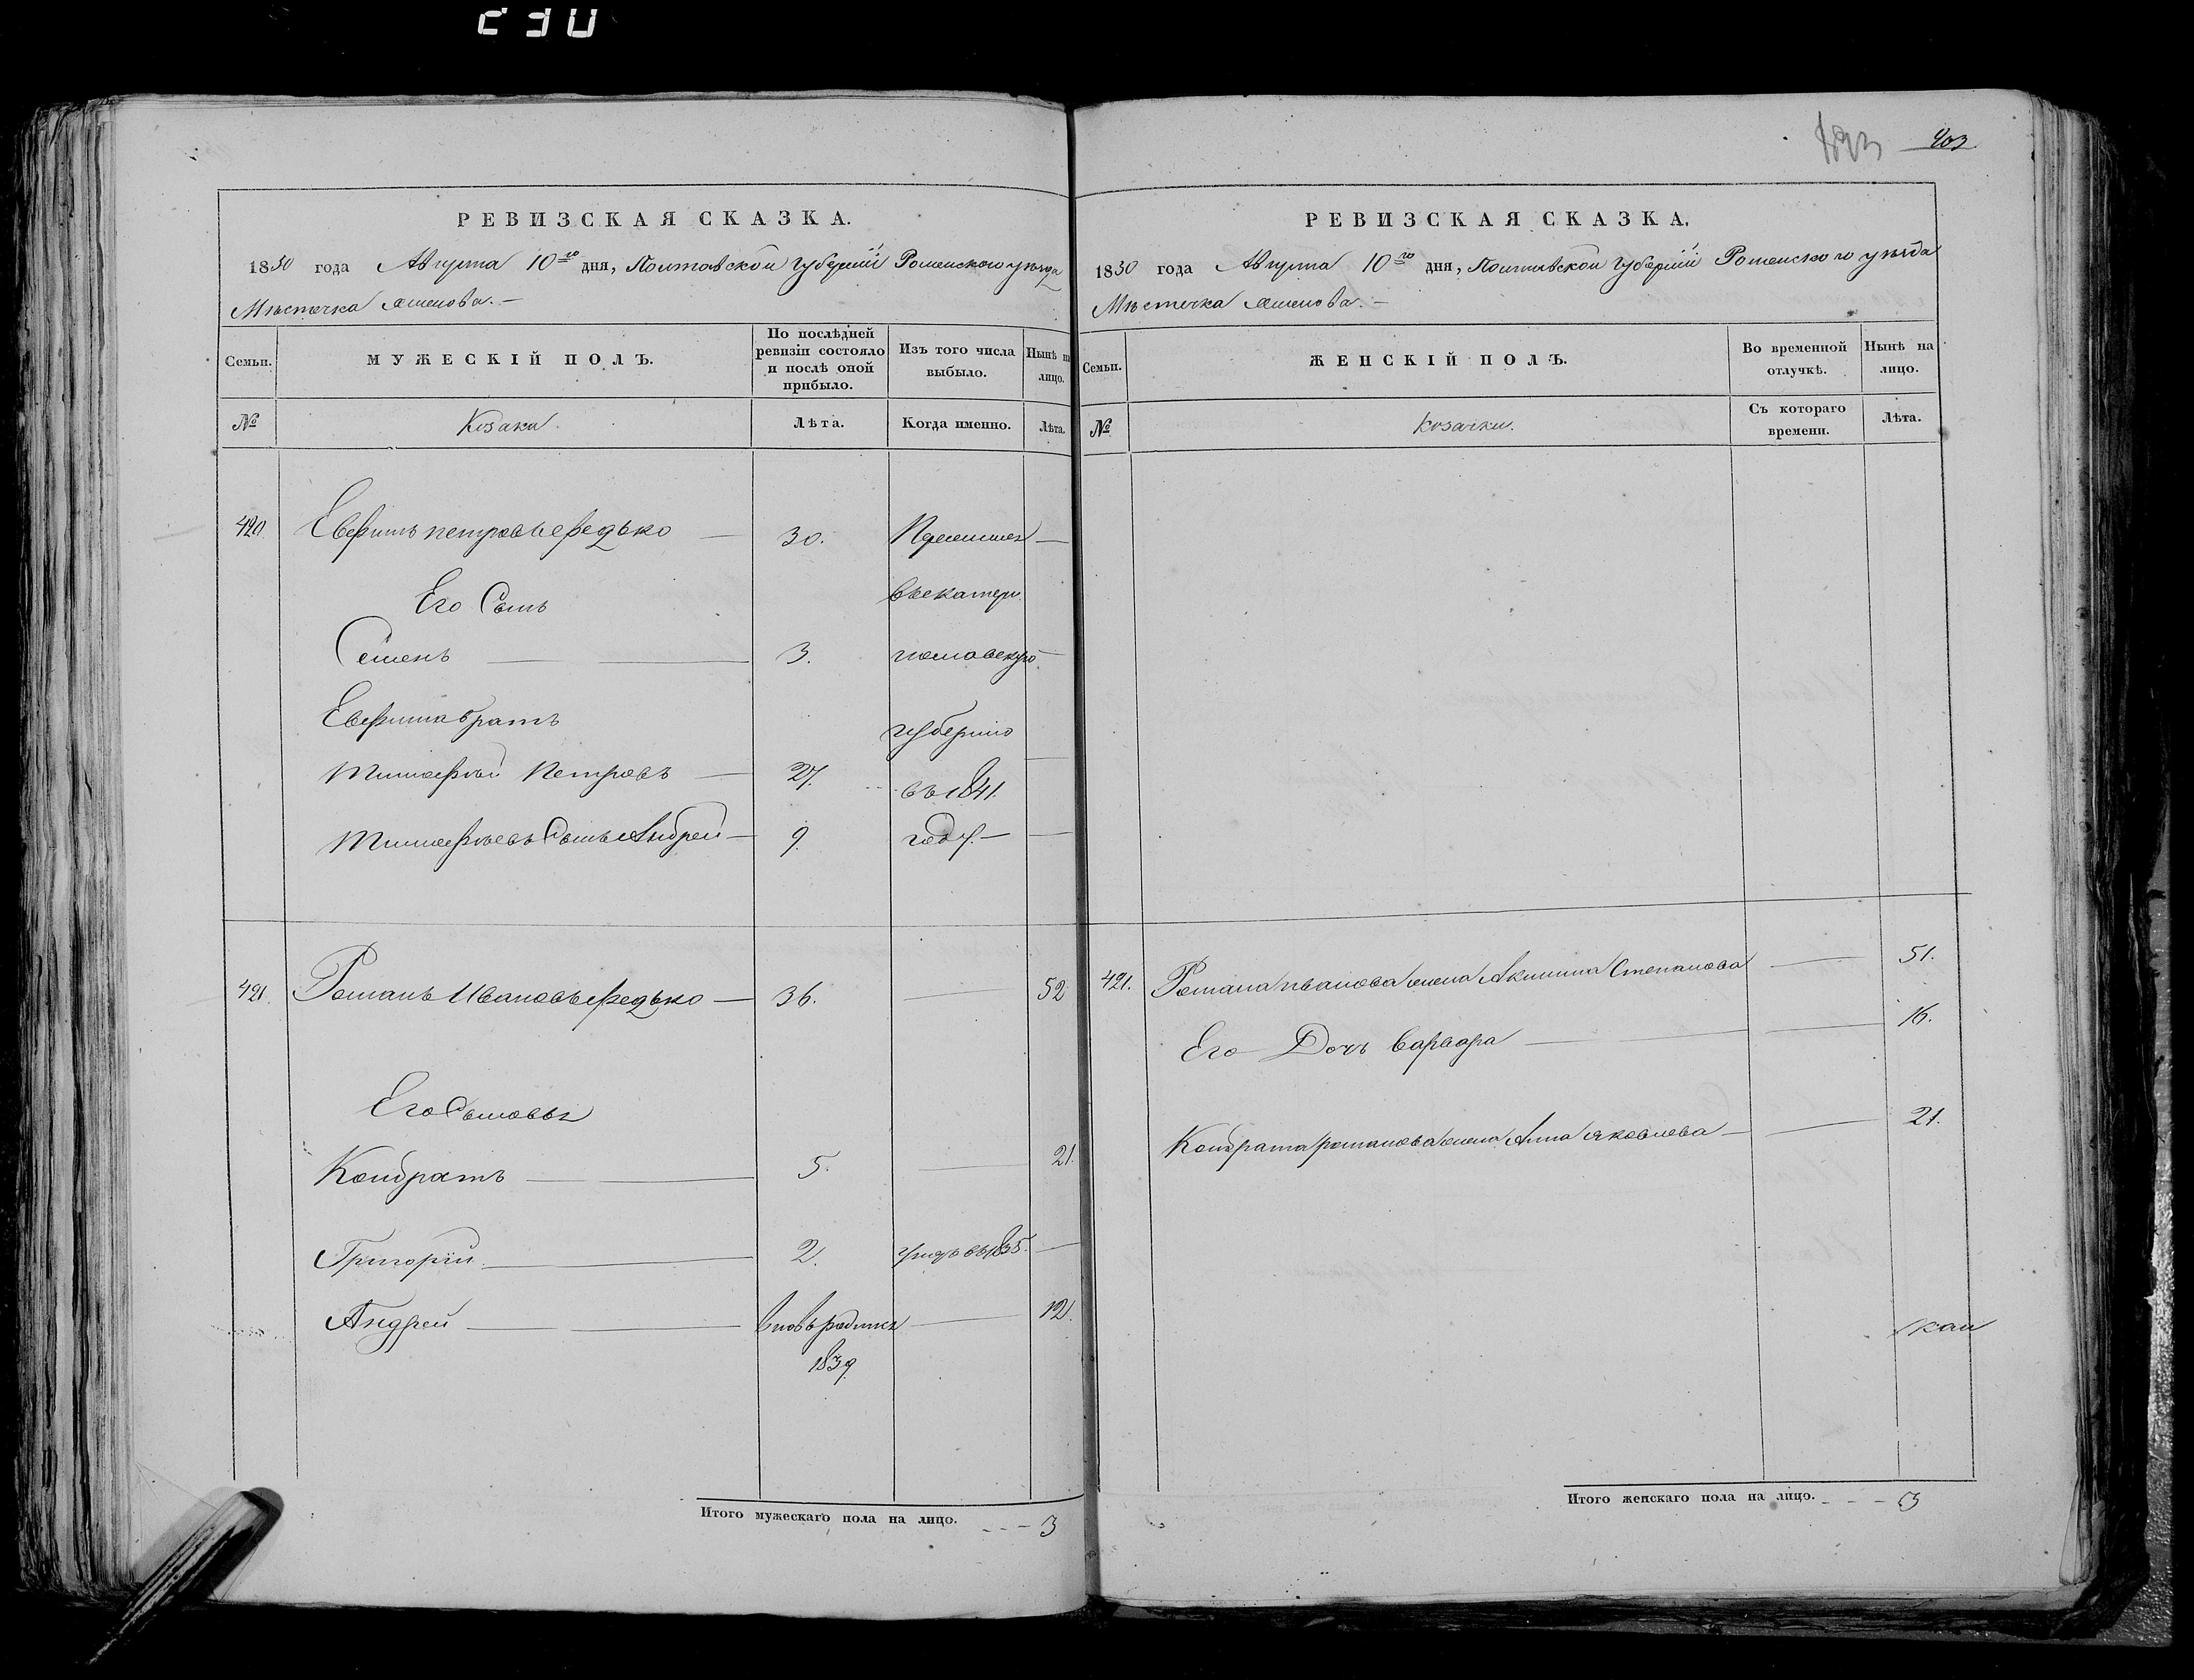 РЕВИЗСКАЯ СКАЗКА.
1850 года Августа 10го дня, Полтавской Губернии Роменского уезда
Местечка Смелова. —
Семьи. МУЖЕСКІЙ ПОЛЪ. По послѣдней ревизіи состояло и послѣ оной прибыло. Изъ того числа выбыло. Нынѣ на лицо.
№ Козаки. Лѣта. Когда именно. Лѣта.
420. Евфимъ Петровъ Редько — 30. Переселен —
Его Сынъ въ Екатери
Семенъ — 3. нославскую —
Евфима братъ губернию
Тимофей Петровъ — 27. въ 1841. —
Тимофеевъ Сынъ Андрей — 9. году. —
421. Романъ Ивановъ Редько — 36. — 52
Его Сыновья
Кондратъ — 5. — 21.
Григорій — 2. умеръ въ 1835. —
Андрей — вновь рожден — 12.
1839
Итого мужескаго пола на лицо. - - - 3
403
РЕВИЗСКАЯ СКАЗКА.
1850 года Августа 10го дня, Полтавской Губерніи Роменского уезда
Местечка Смелова. —
Семьи. ЖЕНСКІЙ ПОЛЪ. Во временной отлучкѣ. Нынѣ на лицо.
№ Козачки. Съ котораго времени. Лѣта.
421. Романа Иванова жена Акилина Степанова — 51.
Его Дочь Варвара — — 16.
Кондрата Романова жена Анна Яковлева — — 21.
Итого женскаго пола на лицо. - - - 3